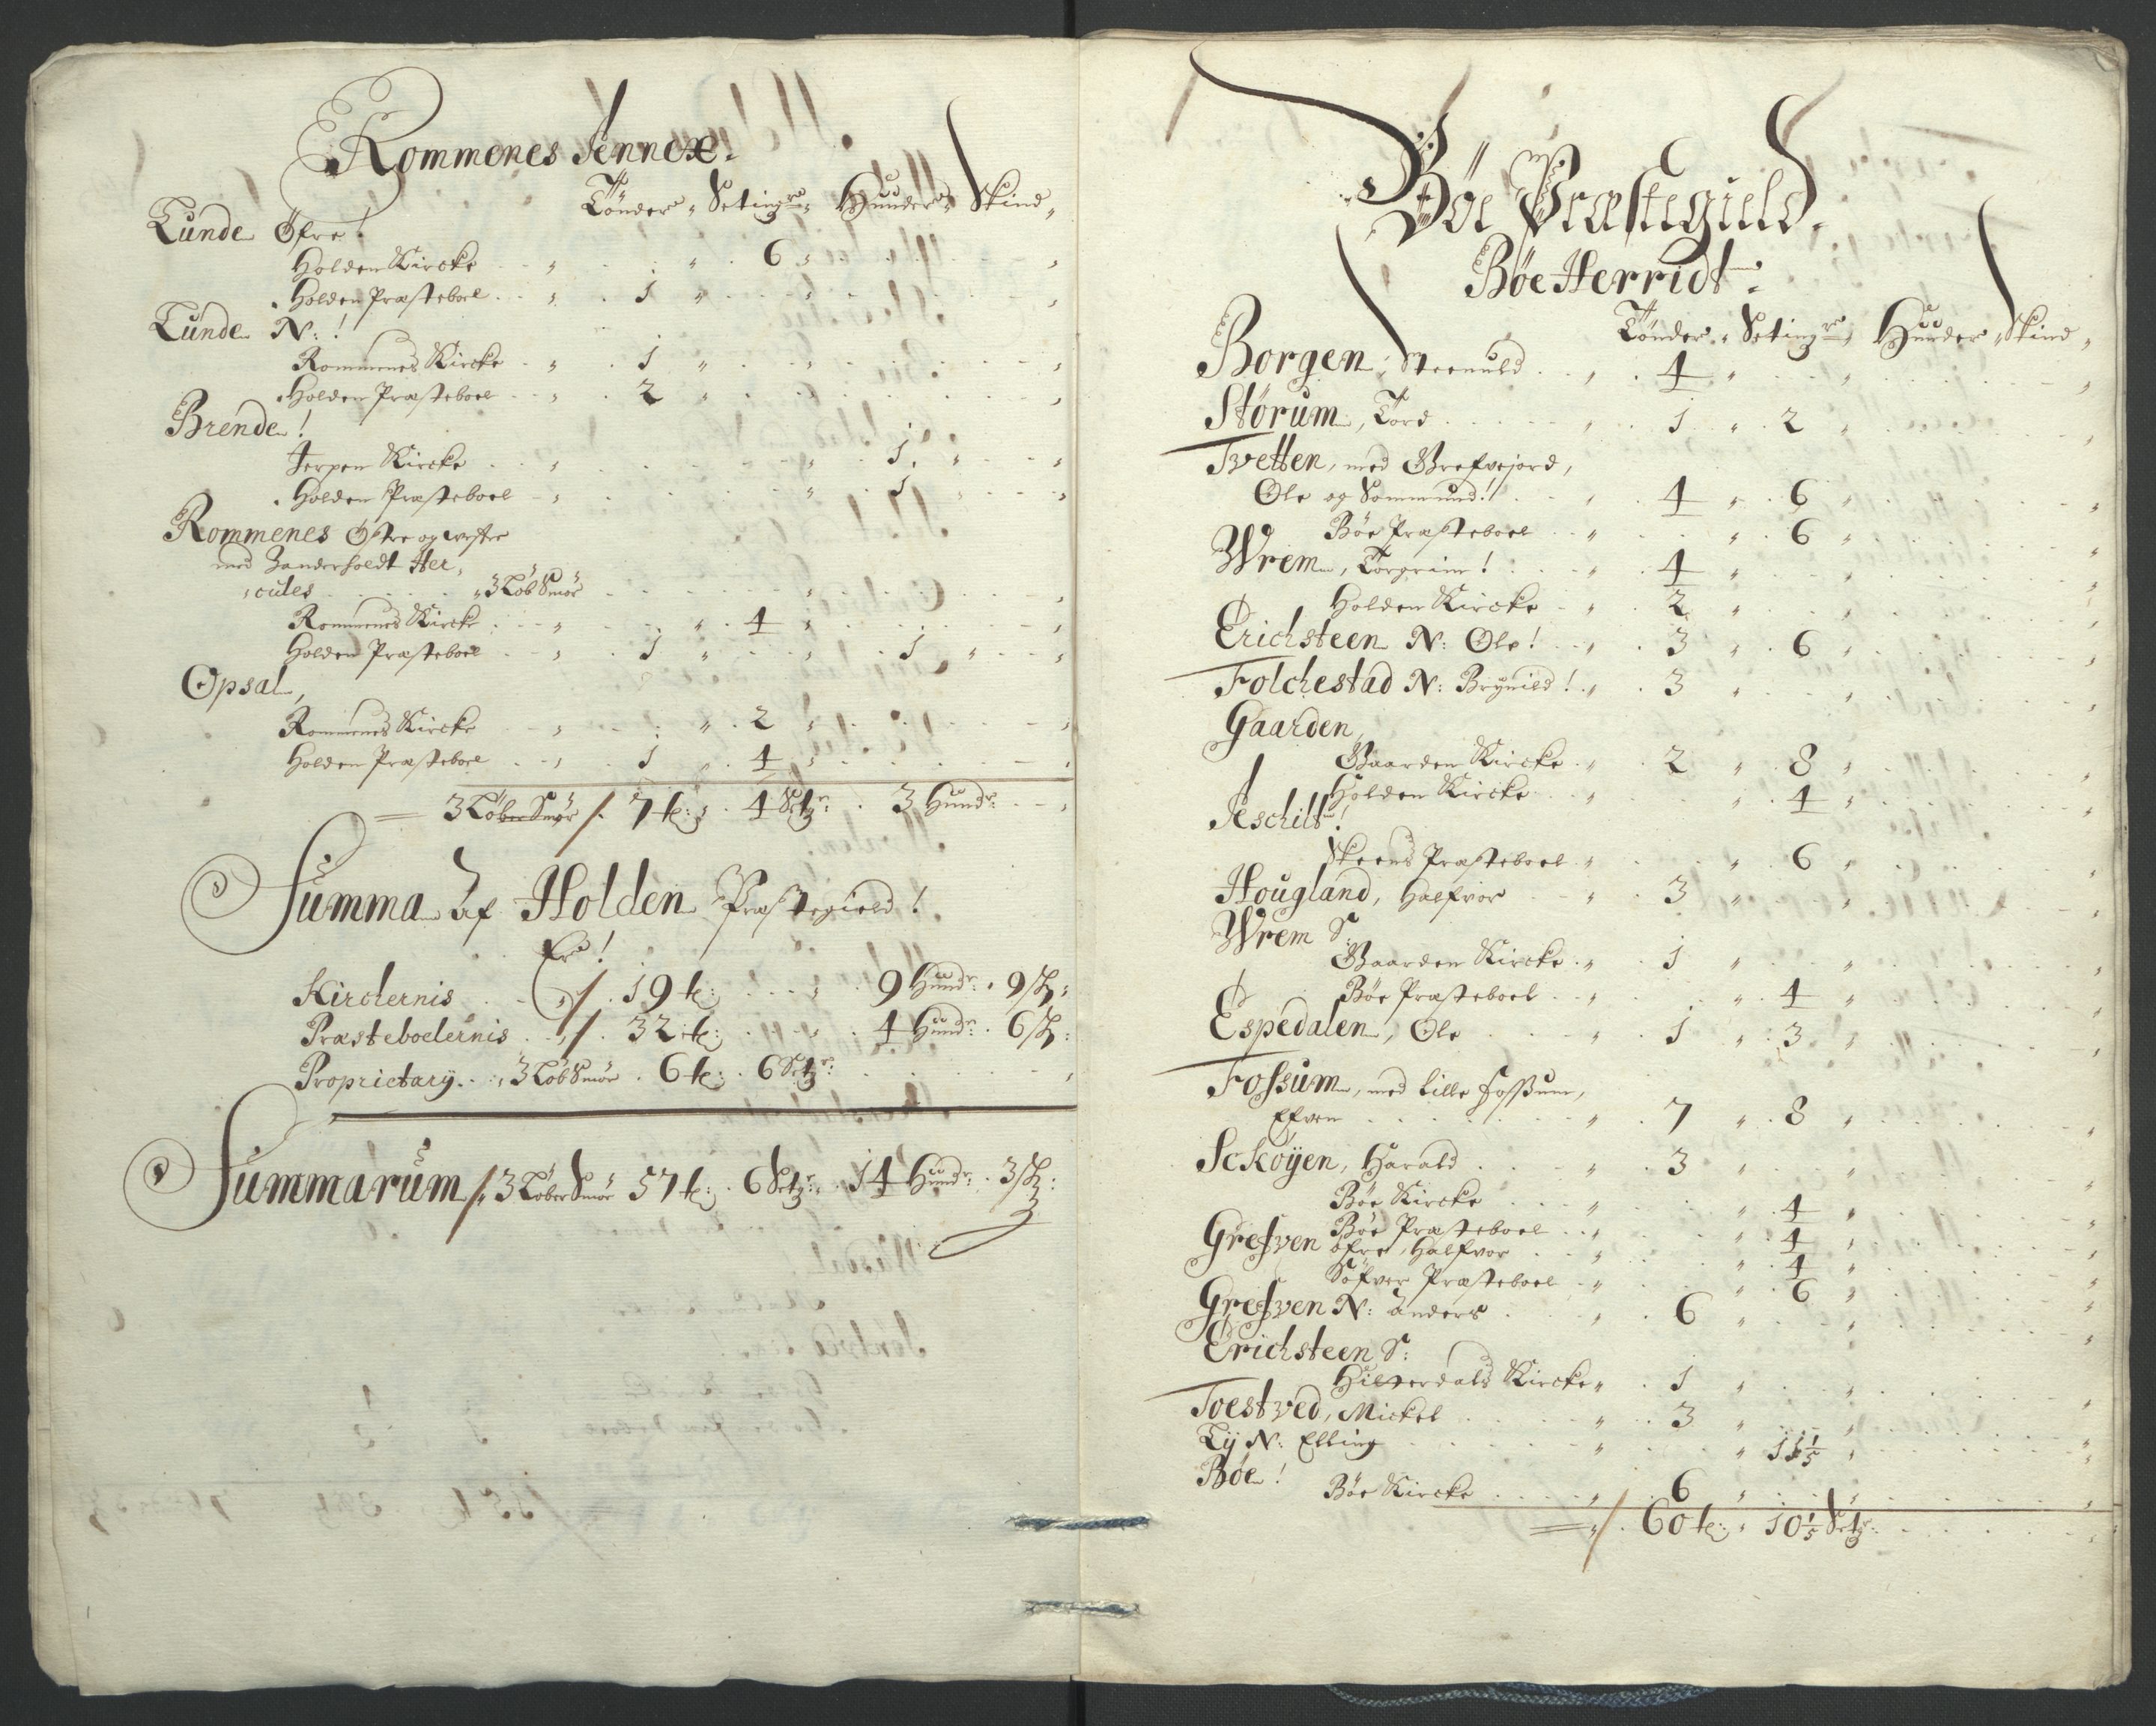 Rommenes Annex.
Tönder, Setinger, Huuder, Skind,
Lunde Öfre!
Holden Kircke 6
Holden Præsteboel 1
Lunde N: !
Rommenes Kircke 1
Holden Præsteboel 2
Brende!
Jerpen Kircke 1
Holden Præsteboel 1
Rommenes Östre og westre
med Zanderholdt Her,
cules 3 Löb Smör
Rommenes Kircke 4
Holden Præsteboel 1 1
Opsal,
Rommenes Kircke 2
Holden Præsteboel 1 4
3 Löber Smör / 7 t: 4 Setzr: 3 Huudr:
Summa af Holden Præstegield!
Er!
Kirckernis 19 t: 9 Huudr: 9 sk:
Præsteboelernis 32 t: 4 Huudr: 6 sk:
Proprietary 3 Löb Smör 6 t: 6 Setzr:
Summarum / 3 Löber Smör 57 t: 6 Setzr: 14 Huudr: 3 sk:
Böe Præstegield.
Böe Herridt:
Tönder, Setingr, Huuder, Skind,
Borgen, Steenuld 4
Störum, Tord 1 2
Tvetten, med Grefvejord,
Ole og Sommund! 4 6
Böe Præsteboel 6
Wrem, Torgrim! 4
Holden Kircke 2
Erichsteen N: Ole! 3 6
Folchestad N: Brynild! 3
Gaarden,
Gaarden Kircke 2 8
Holden Kircke 4
Aschilt!
Skeens Præsteboel 6
Hougland, Halfvor 3
Wrem S:
Gaarden Kircke 1
Böe Præsteboel 4
Espedalen, Ole 1 3
Fossum, med lille Fossum,
Efven 7 8
Scköyen, Harald 3
Böe Kircke 4
Böe Præsteboel 4
Grefven öfre, Halfvor 4
Söfver Præsteboel 6
Grefven N: Anders 6
Erichsteen S:
Hitterdals Kircke 1
Toestved, Mickel 3
Ly N: Elling 11 1/5
Böe!
Böe Kircke 6
/ 60 t: 10 1/5 Setzr: